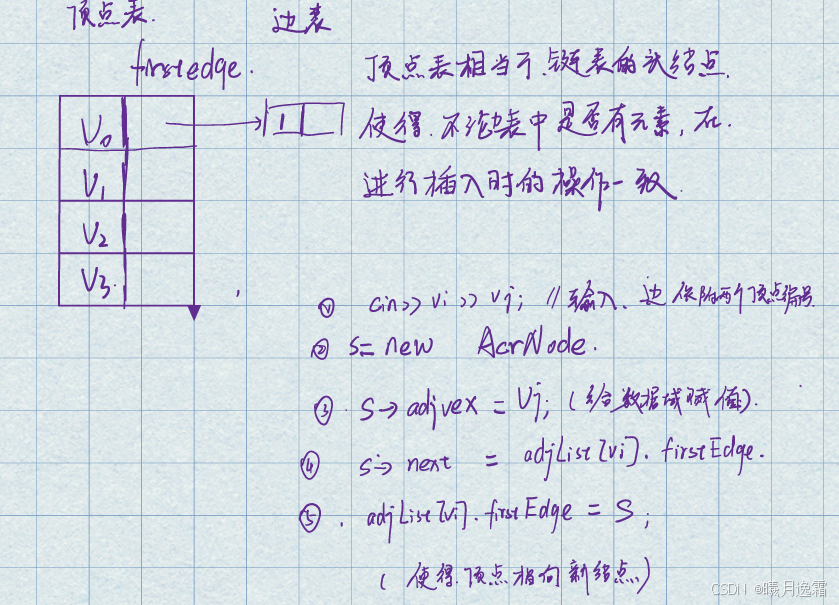 顶点表. 边表
firstedge.
顶点表相当于链表的头结点.
V₀ 1 使得.不论边表中是否有元素,在.
V₁ 进行插入时的操作一致.
V₂
V₃.
① cin>> vi >> vj; // 输入.边 依附两个顶点编号
② s= new AcrNode.
③ . S→adjvex = Vj; (给数据域赋值).
④ s→next = adjList[vi].firstEdge.
⑤ . adjList[vi].firstEdge = S;
( 使得.顶点指向新结点)
CSDN @曦月逸霜